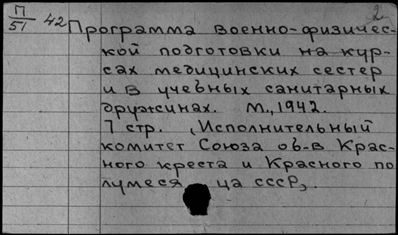 2
П/51 42 Программа военно-физичес-
кой подготовки на кур-
сах медицинских сестер
и в учебных санитарных
дружинах. М., 1942.
7 стр. (Исполнительный
комитет Союза об-в Крас-
ного креста и Красного по
лумеся ца СССР).